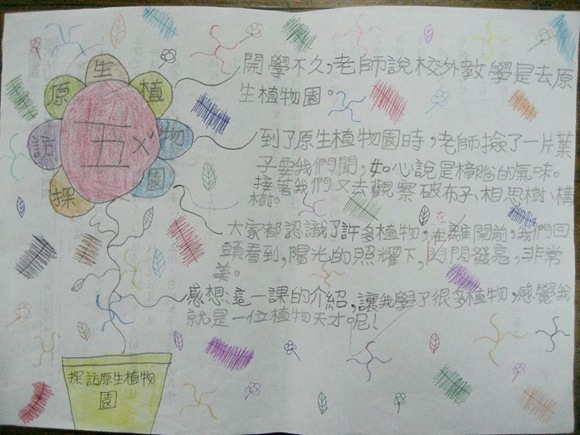 探訪原生植物園
五ㄨˇ
開學不久,老師說校外教學是去原
生植物園。
到了原生植物園時,老師撿了一片葉
子要我們聞,如心說是樟腦的氣味。
接著我們又去觀察破布子、相思樹、構
樹。
大家都認識了許多植物,在離開前,我們回
頭看到,陽光的照耀下,閃發亮,非常
美。
感想:這一課的介紹,讓我學了很多植物,感覺我
就是一位植物天才呢!
探訪原生植物
園